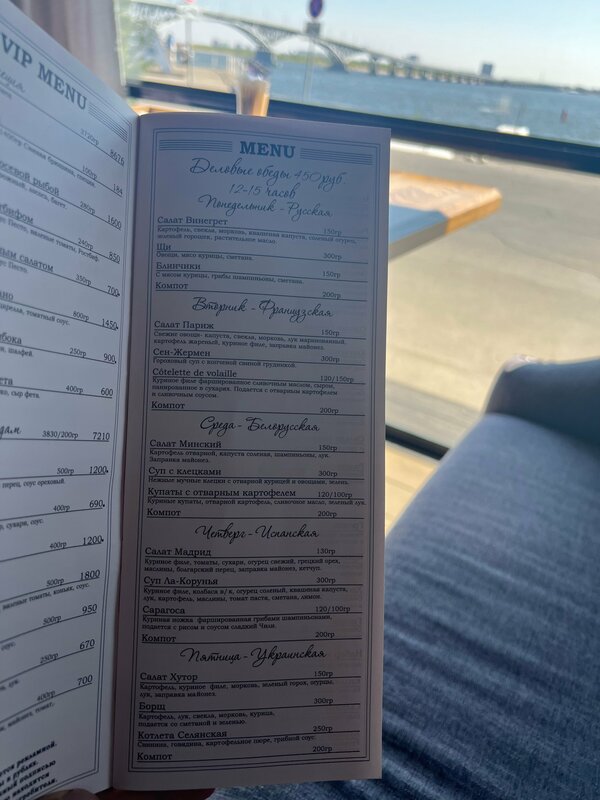 VIP MENU
3720гр 8676
100гр 184
280гр 1600
240гр 850
350гр 700.
800гр 1450.
250гр 900.
400гр 600
3830/200гр 7210
500гр 1200.
перец, соус ореховый.
400гр 690.
р, сухари, соус.
400гр 1200.
500гр 1800
вяленые томаты, коньяк, соус.
500гр 950
250гр 670
400гр 700
MENU
Деловые обеды 450 руб.
12-15 часов
Понедельник - Русская
Салат Винегрет 150гр
Картофель, свекла, морковь, квашеная капуста, соленый огурец,
зеленый горошек, растительное масло.
Щи 300гр
Овощи, мясо курицы, сметана.
Блинчики 150гр
С мясом курицы, грибы шампиньоны, сметана.
Компот 200гр
Вторник - Французская
Салат Париж 150гр
Свежие овощи- капуста, свекла, морковь, лук маринованный,
картофель жареный, куриное филе, заправка майонез.
Сен-Жермен 300гр
Гороховый суп с копченой свиной грудинкой.
Côtelette de volaille 120/150гр
Куриное филе фаршированное сливочным маслом, сыром,
панированное в сухарях. Подается с отварным картофелем
и сливочным соусом.
Компот 200гр
Среда - Белорусская
Салат Минский 150гр
Картофель отварной, капуста соленая, шампиньоны, лук.
Заправка майонез.
Суп с клецками 300гр
Нежные мучные клецки с отварной курицей и овощами, зелень.
Купаты с отварным картофелем 120/100гр
Куриные купаты, отварной картофель, сливочное масло, зеленый лук.
Компот 200гр
Четверг - Испанская
Салат Мадрид 130гр
Куриное филе, томаты, сухари, огурец свежий, грецкий орех,
маслины, болгарский перец, заправка майонез, кетчуп.
Суп Ла-Корунья 300гр
Куриное филе, колбаса в/к, огурец соленый, квашеная капуста,
лук, картофель, маслины, томат паста, сметана, лимон.
Сарагоса 120/100гр
Куриная ножка фаршированная грибами шампиньонами,
подается с рисом и соусом сладкий Чили.
Компот 200гр
Пятница - Украинская
Салат Хутор 150гр
Картофель, куриное филе, морковь, зеленый горох, огурцы,
лук, заправка майонез.
Борщ 300гр
Картофель, лук, свекла, морковь, курица,
подается со сметаной и зеленью.
Котлета Селянская 250гр
Свинина, говядина, картофельное пюре, грибной соус.
Компот 200гр